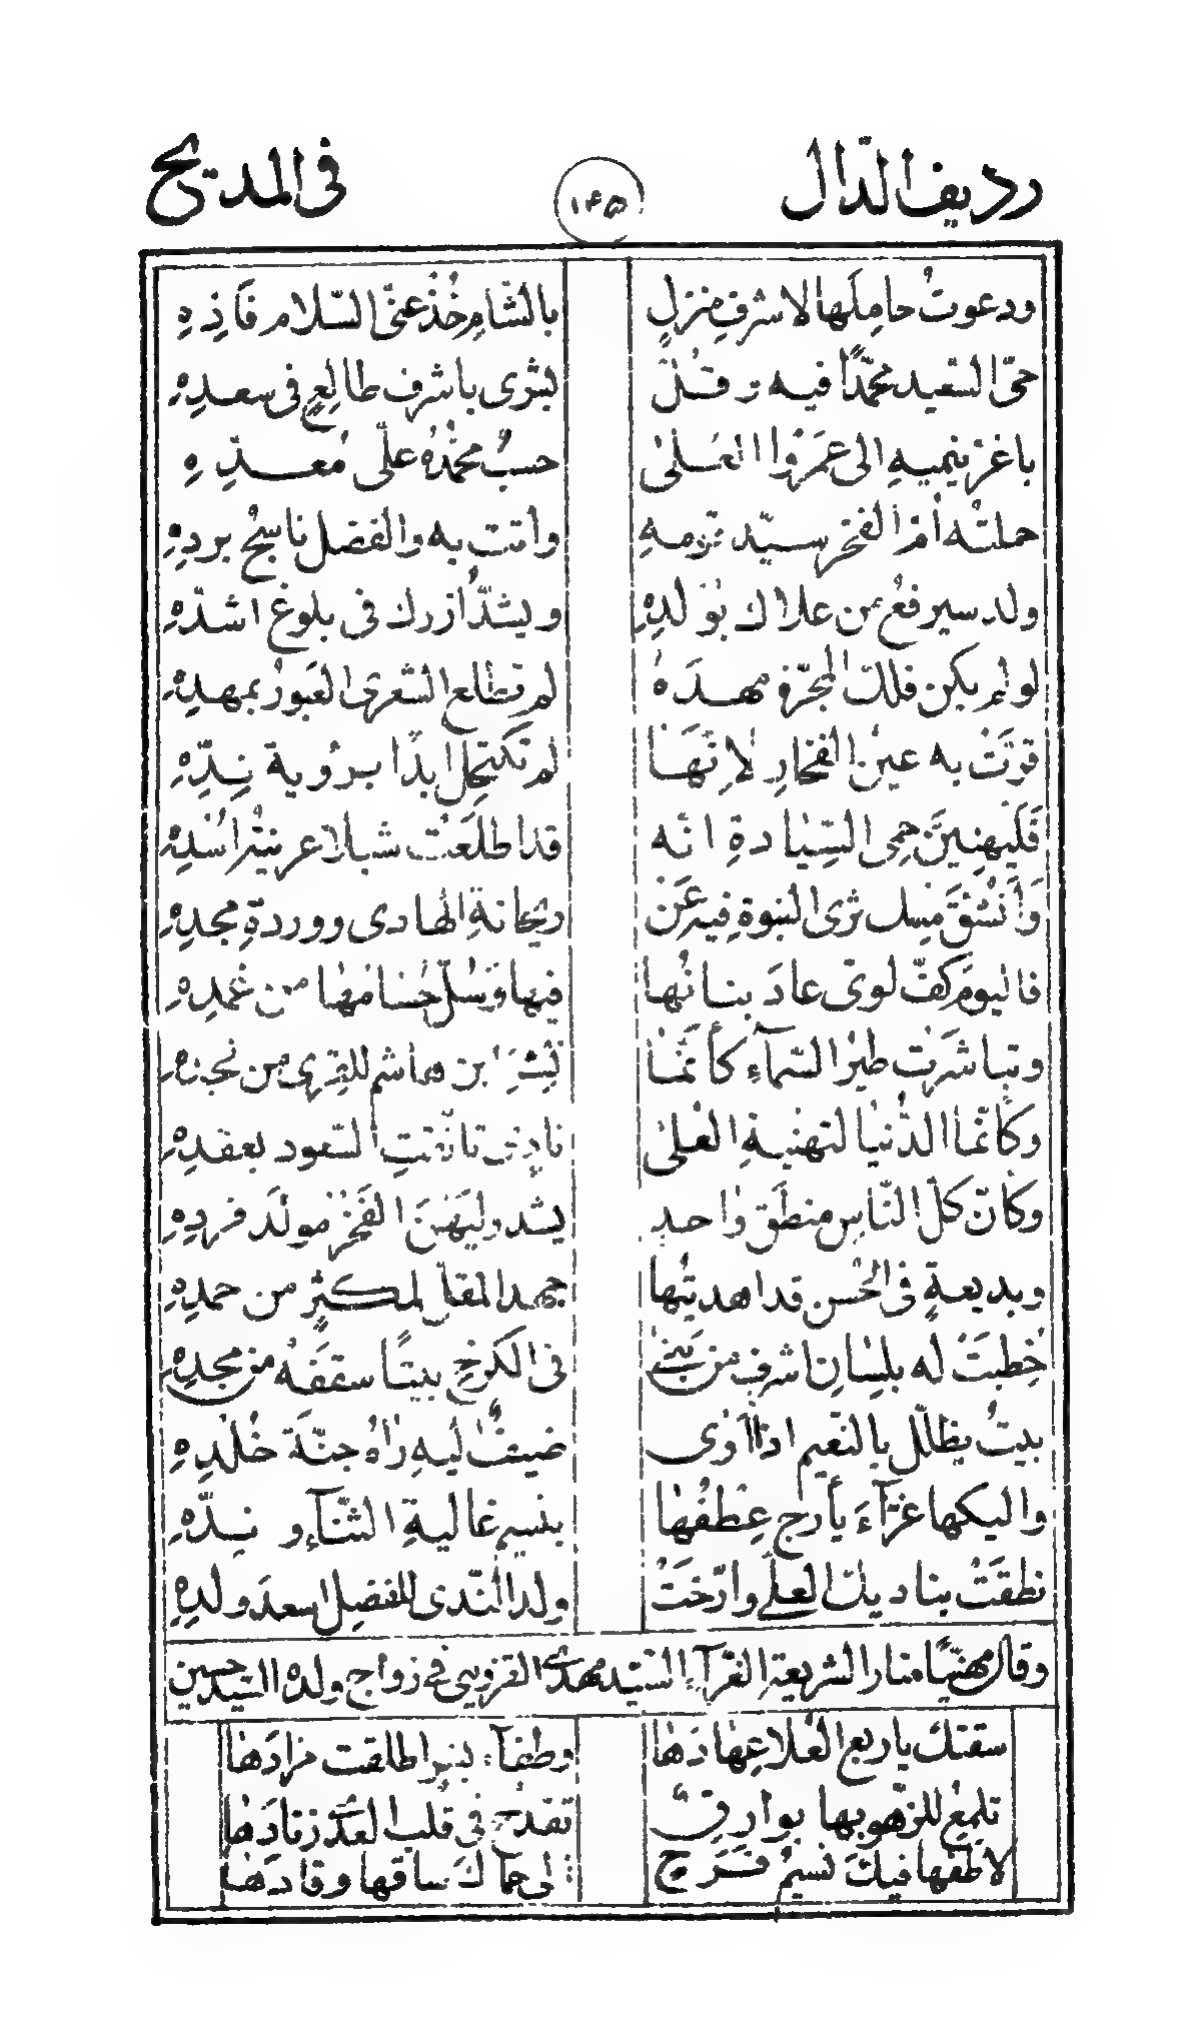 رديف الدّال ١٤٥ فى المديح
ودعوتُ حامِلَها لاشرفِ منزلٍ بالشّامِ خُذْ عنّى السّلام فَاذِهِ
حىّ السّعيد محمّدًا فيه وقُلْ بشرى باشرف طالِعٍ فى سعدِهِ
باغرّ ينميهِ الى عَمْرو العُلىٰ حسبٌ محمّدُهُ علّى مُعَدِّهِ
حملتْه أمّ الفخر سيّد قومهِ وأتت به والفضل ناسِجُ بردِهِ
ولد سيرفعُ من علاك بمولدِهِ ويشدّ أزرك فى بلوغ اشدّهِ
لو لم يكن فلك المجرّة مهدَهُ لم تطلع الشعرى العَبور بمهدِهِ
قرّتْ به عينُ الفخارِ لانّهَا لم تكتحِل ابدًا برؤية نِدِّهِ
فَليهنِيَنَّ حِمى السّيادةِ انّه قد اطلَعَت شبلا عرينة اُسْدِهِ
وَأَنْشَقَ مِسك ثرى النبوةِ فيه عَنْ ريحانةِ الهادى ووردةِ مجدِهِ
فاليوم كفّ لوىّ عادَ بنانُها فيها وَسُلّ حُسامُها من غمدِهِ
وتباشَرَت طيرُ السّمآءِ كأنّمَا بن هاشم للقِرى من
وكأنّما الدُّنيا لتهنيةِ العُلىٰ نادٍ السّعود بعقدِهِ
وكأنّ كلّ النّاسِ منطَق واحدٍ يشدو ليَهْنَ الفَخْرَ مولَد فردِهِ
وبديعةٍ فى الحُسن قد اهديتُها جهد المقلّ لمكثرٍ من حمدِهِ
خُطبَتْ له بلِسانِ اشرف من بَنىٰ فى الكرخِ بيتًا سقفَهُ من مجدِهِ
بيتٌ يظلّل بالنّعيم اذا أوى ضيفٌ اليهِ رآهُ جنّةَ خُلْدِهِ
واليكها غرّآءَ يأرج عِطفُها بنسيم غاليةِ الثّنآءِ و نِدّهِ
نطقَتْ بناديك العلے وارّخَتْ ولد النّدى للفضل اسعدَ ولدِهِ
وقال مهنّيًا منار الشريعةِ الغرّآءِ السّيّد مهدى القزوينى فى زواج ولده السّيّد حسين
سقتك ياربع العُلا عِهادَها وطفآءُ اطلقت مزادَها
تلمعُ للزّهو بها بوارقٌ تقدحُ فى قلب العُدَى زنادَها
لاطفها فيكَ نسيمُ فَرَجٍ الى حِماكَ ساقها وقادَها